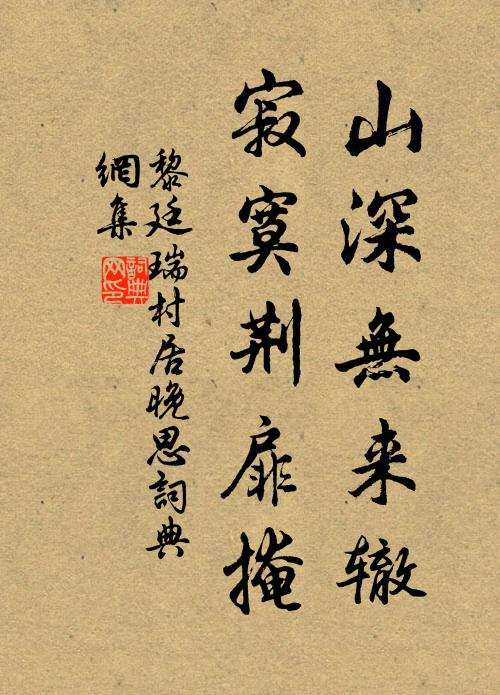 山深無来辙
寂寞荆扉掩
黎廷瑞村居晚思詞典
網集
詞典
网印